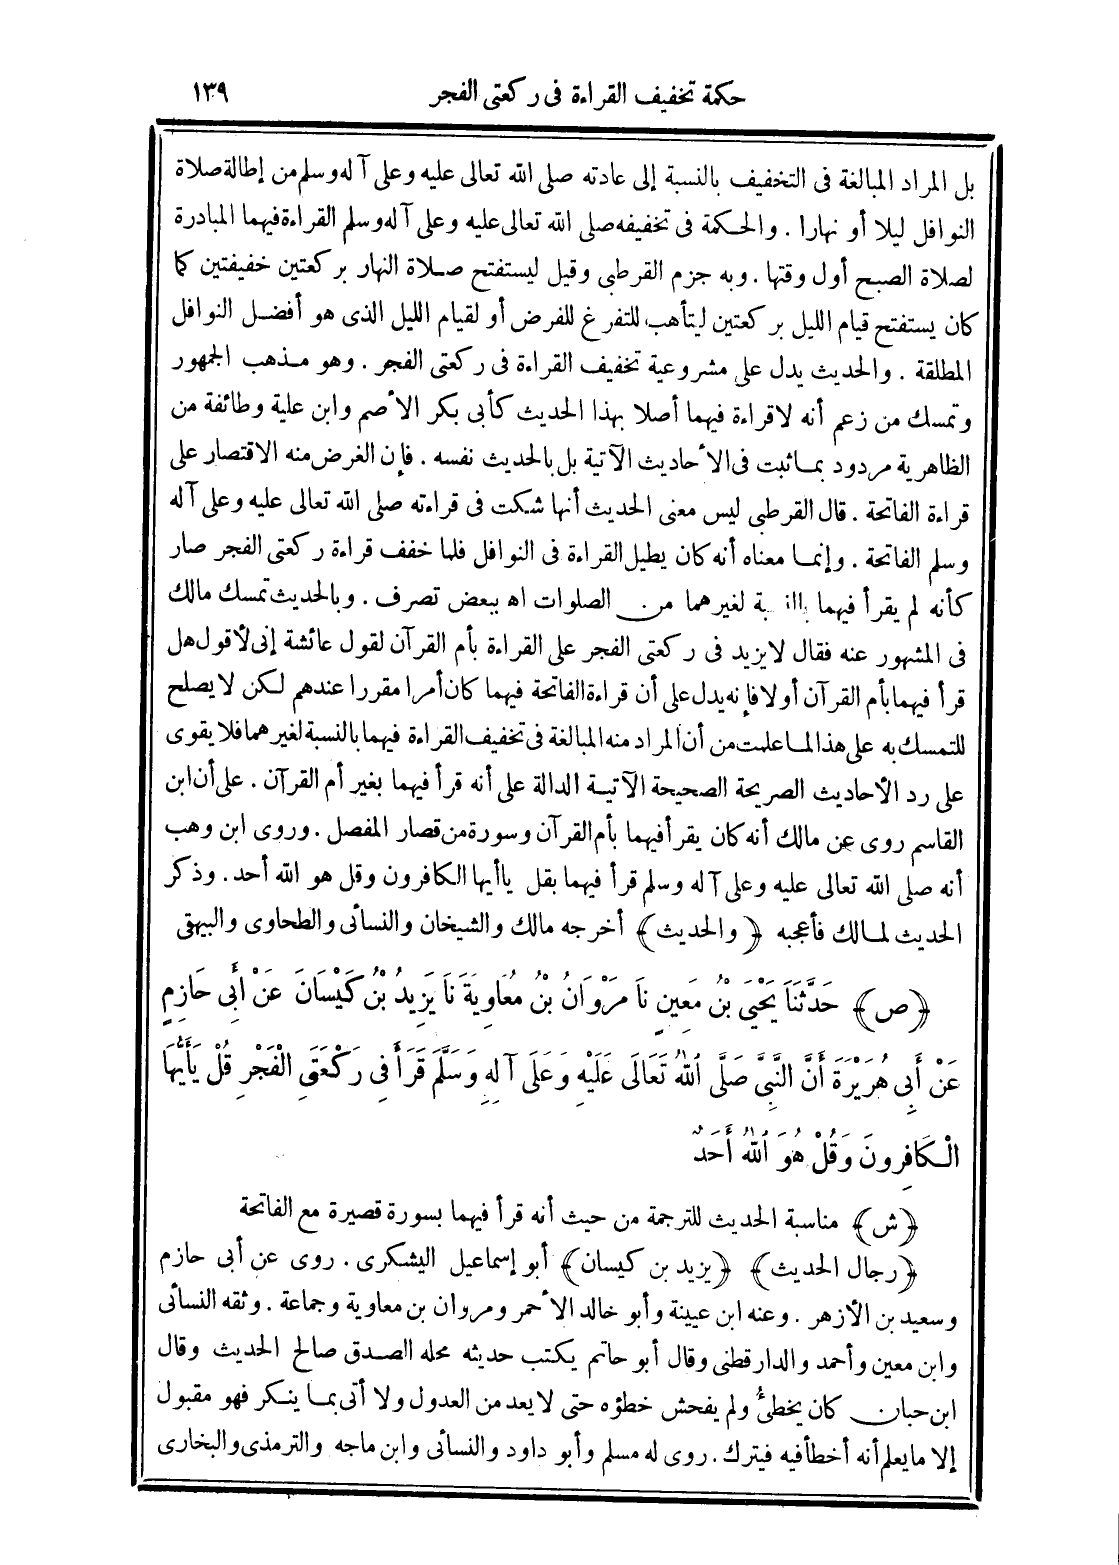 حكمة تخفيف القراءة فى ركعتى الفجر ١٣٩
بل المراد المبالغة فى التخفيف بالنسبة إلى عادته صلى الله تعالى عليه وعلى آله وسلم من إطالة صلاة
النوافل ليلا أو نهارا . والحكمة فى تخفيفه صلى الله تعالى عليه وعلى آله وسلم القراءة فيهما المبادرة
لصلاة الصبح أول وقتها . وبه جزم القرطبى وقيل ليستفتح صلاة النهار بركعتين خفيفتين كما
كان يستفتح قيام الليل بركعتين ليتأهب للتفرغ للفرض أو لقيام الليل الذى هو أفضل النوافل
المطلقة . والحديث يدل على مشروعية تخفيف القراءة فى ركعتى الفجر . وهو مذهب الجمهور
وتمسك من زعم أنه لاقراءة فيهما أصلا بهذا الحديث كأبى بكر الأصم وابن علية وطائفة من
الظاهرية مردود بماثبت فى الأحاديث الآتية بل بالحديث نفسه . فإن الغرض منه الاقتصار على
قراءة الفاتحة . قال القرطبى ليس معنى الحديث أنها شكت فى قراءته صلى الله تعالى عليه وعلى آله
وسلم الفاتحة . وإنما معناه أنه كان يطيل القراءة فى النوافل فلما خفف قراءة ركعتى الفجر صار
كأنه لم يقرأ فيهما لغيرهما من الصلوات اه ببعض تصرف . وبالحديث تمسك مالك
فى المشهور عنه فقال لايزيد فى ركعتى الفجر على القراءة بأم القرآن لقول عائشة إنى لأقول هل
قرأ فيهما بأم القرآن أولا فإنه يدل على أن قراءة الفاتحة فيهما كان أمرا مقررا عندهم لكن لايصلح
للتمسك به على هذا لماعلمت من أن المراد منه المبالغة فى تخفيف القراءة فيهما بالنسبة لغيرهما فلا يقوى
على رد الأحاديث الصريحة الصحيحة الآتية الدالة على أنه قرأ فيهما بغير أم القرآن . على أن ابن
القاسم روى عن مالك أنه كان يقرأ فيهما بأم القرآن وسورة من قصار المفصل . وروى ابن وهب
أنه صلى الله تعالى عليه وعلى آله وسلم قرأ فيهما بقل ياأيها الكافرون وقل هو الله أحد . وذكر
الحديث لمالك فأعجبه ﴿والحديث﴾ أخرجه مالك والشيخان والنسائى والطحاوى والبيهقى
﴿ص﴾ حَدَّثَنَا يَحْيَى بْنُ مَعِينٍ نَا مَرْوَانُ بْنُ مُعَاوِيَةَ نَا يَزِيدُ بْنُ كَيْسَانَ عَنْ أَبِى حَازِمٍ
عَنْ أَبِى هُرَيْرَةَ أَنَّ النَّبِىَّ صَلَّى اللهُ تَعَالَى عَلَيْهِ وَعَلَى آلِهِ وَسَلَّمَ قَرَأَ فِى رَكْعَتَىِ الْفَجْرِ قُلْ يَأَيُّهَا
الْكَافِرُونَ وَقُلْ هُوَ اللهُ أَحَدٌ
﴿ش﴾ مناسبة الحديث للترجمة من حيث أنه قرأ فيهما بسورة قصيرة مع الفاتحة
﴿رجال الحديث﴾ ﴿يزيد بن كيسان﴾ أبو إسماعيل اليشكرى . روى عن أبى حازم
وسعيد بن الأزهر . وعنه ابن عيينة وأبو خالد الأحمر ومروان بن معاوية وجماعة . وثقه النسائى
وابن معين وأحمد والدارقطنى وقال أبو حاتم يكتب حديثه محله الصدق صالح الحديث وقال
ابن حبان كان يخطئ ولم يفحش خطؤه حتى لايعد من العدول ولا أتى بما ينكر فهو مقبول
إلا مايعلم أنه أخطأ فيه فيترك . روى له مسلم وأبو داود والنسائى وابن ماجه والترمذى والبخارى